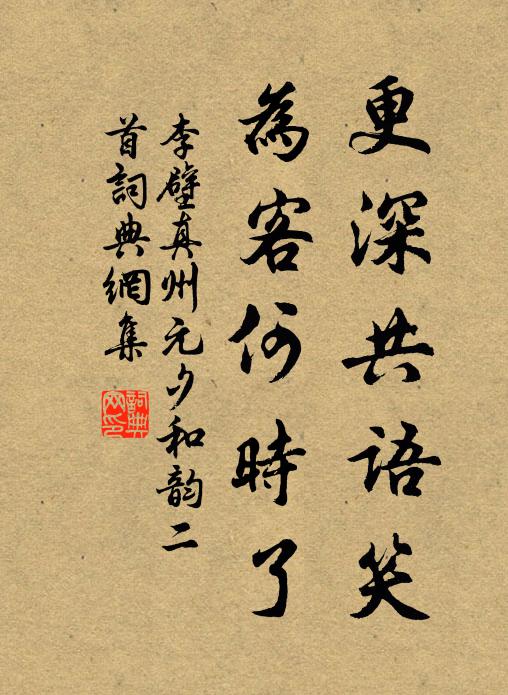 更深共語笑
為客何時了
李壁真州元夕和韵二
首詞典網集
詞典
网印